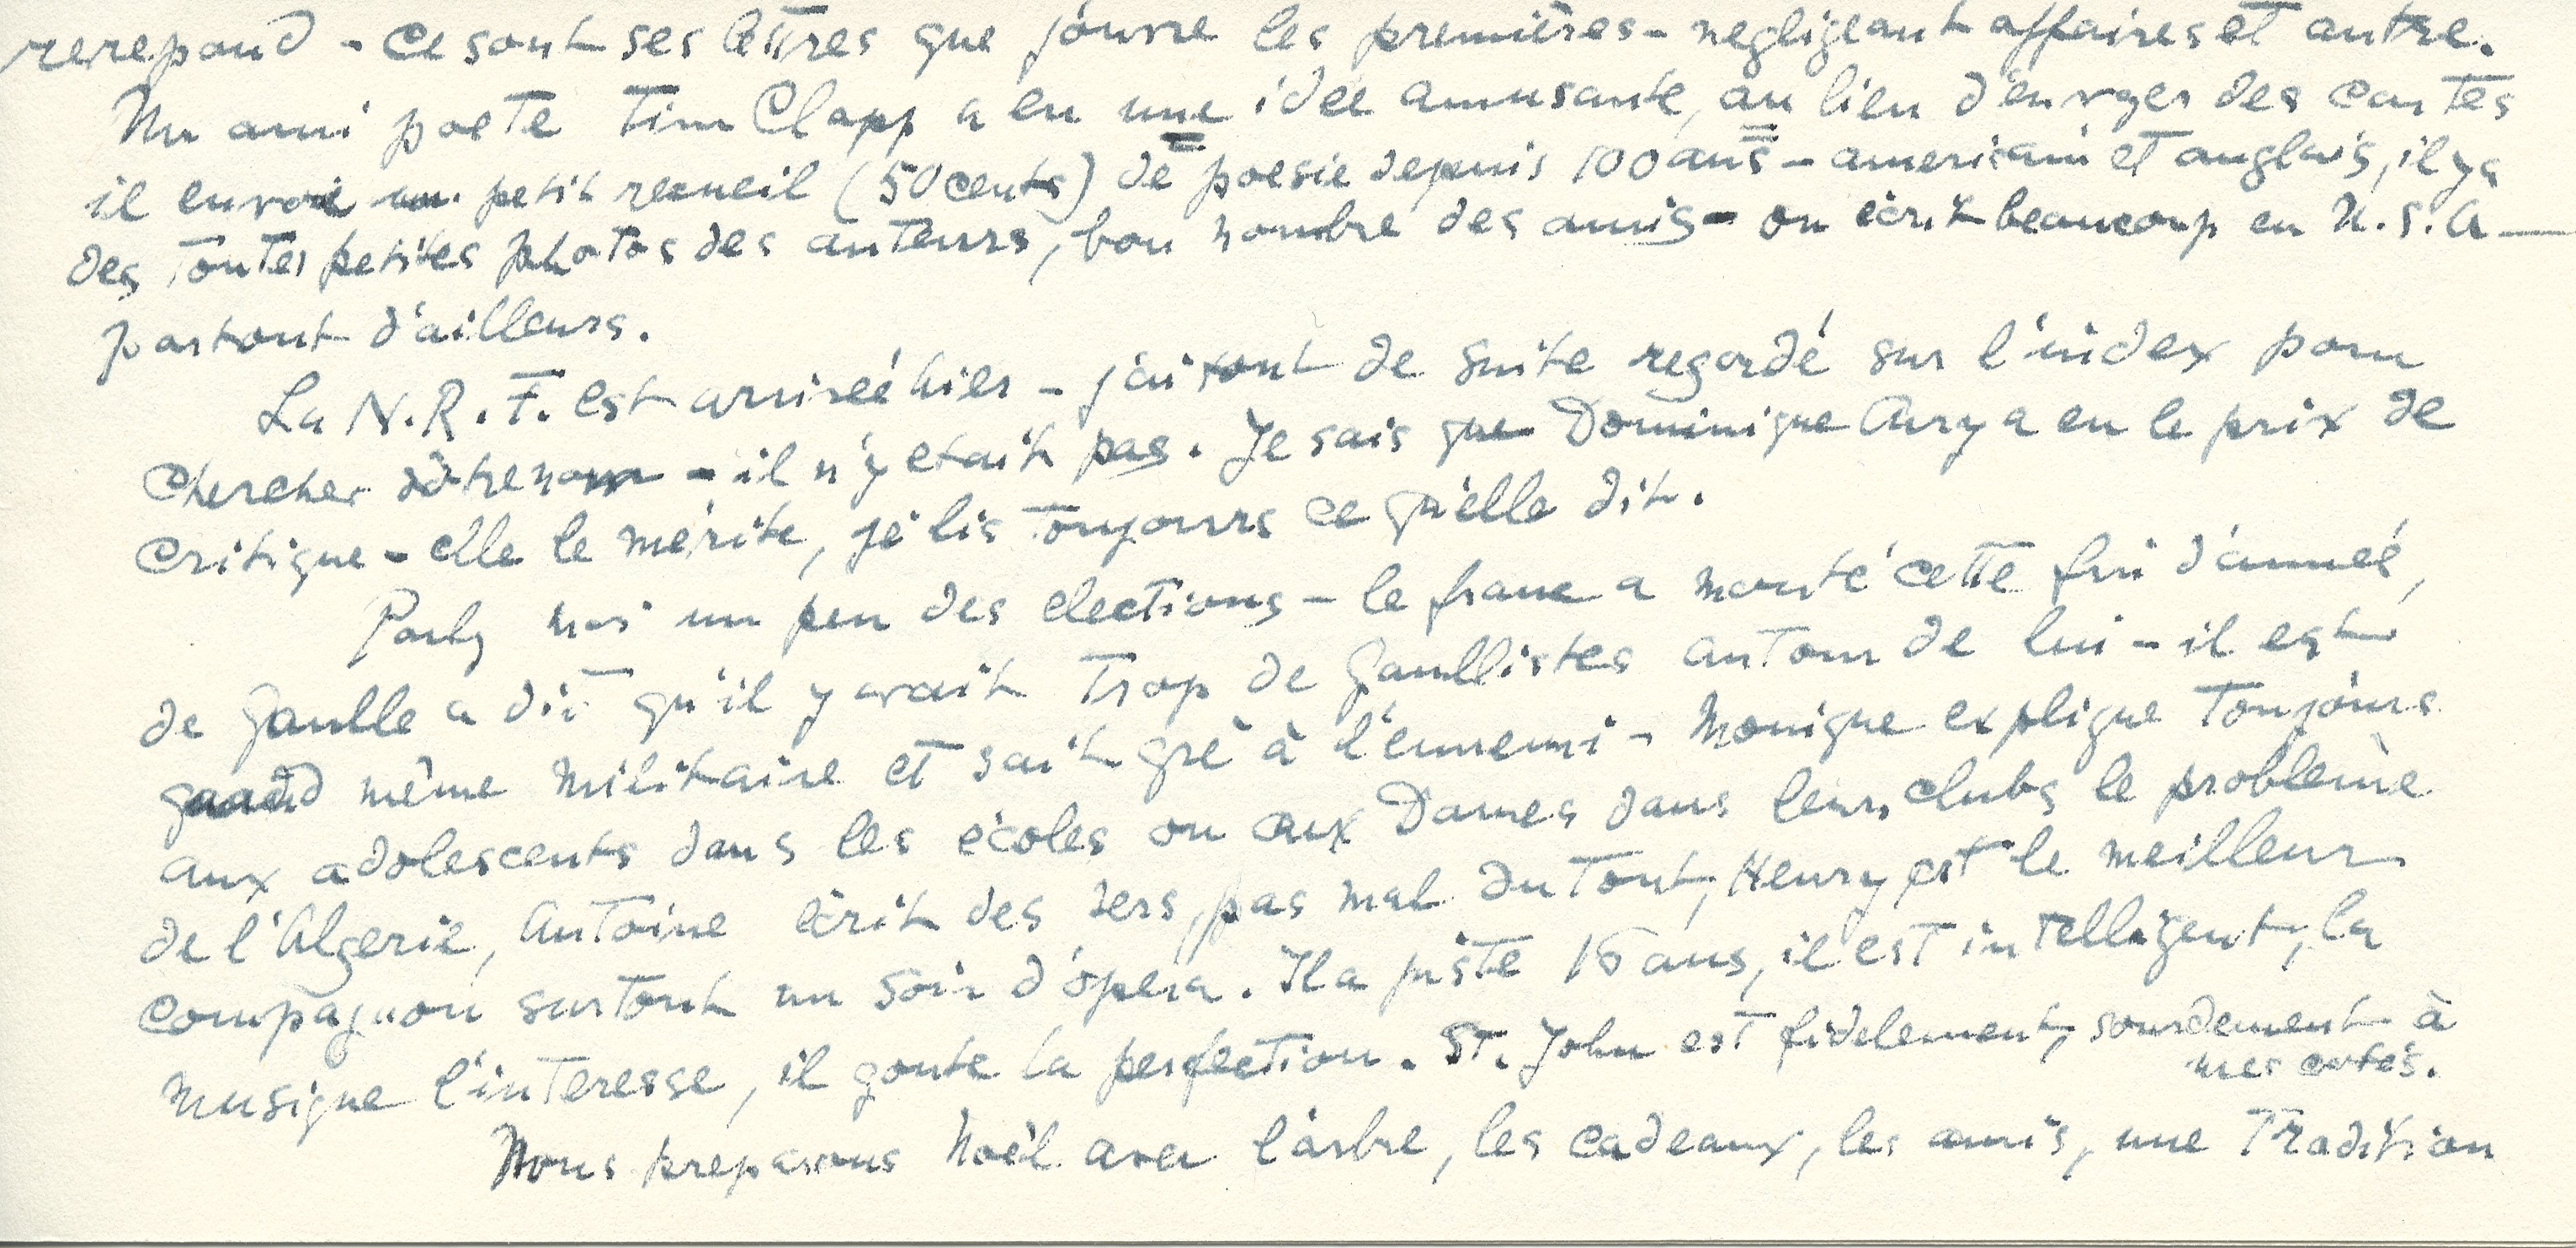 rerepond - ce sont ses lettres que j'ouvre les premières - negligeant affaires et autre.
Un ami poete Tim Clapp a eu une idée amusante, au lieu d'envoyer des cartes
il envoie un petit recueil (50 cents) de poesie depuis 100 ans - americain et anglais, il y a
des toutes petites photos des auteurs, bon nombre des amis - on écrit beaucoup en U.S.A -
partout d'ailleurs.
La N.R.F. est arriveé hier - j'ai tout de suite regardé sur l'index pour
chercher votre nom - il n'y etait pas. Je sais que Dominique Aury a eu le prix de
critique - elle le mérite, je lis toujours ce qu'elle dit.
Parlez moi un peu des elections - le franc a monté cette fin d'anneé,
de Gaulle a dit qu'il y avait trop de Gaullistes autour de lui - il est
quand même militaire et sait gré à l'ennemi - Monique explique toujours
aux adolescents dans les écoles ou aux Dames dans leurs clubs le problème
de l'Algerie, Antoine écrit des vers, pas mal du tout, Henry est le meilleur
compagnon surtout un soir d'opéra. Il a juste 16 ans, il est intelligent, la
musique l'interesse, il goute la perfection. St. John est fidelement, sourdement à
mes cotés.
Nous preparons Noël avec l'arbre, les cadeaux, les amis, une Tradition